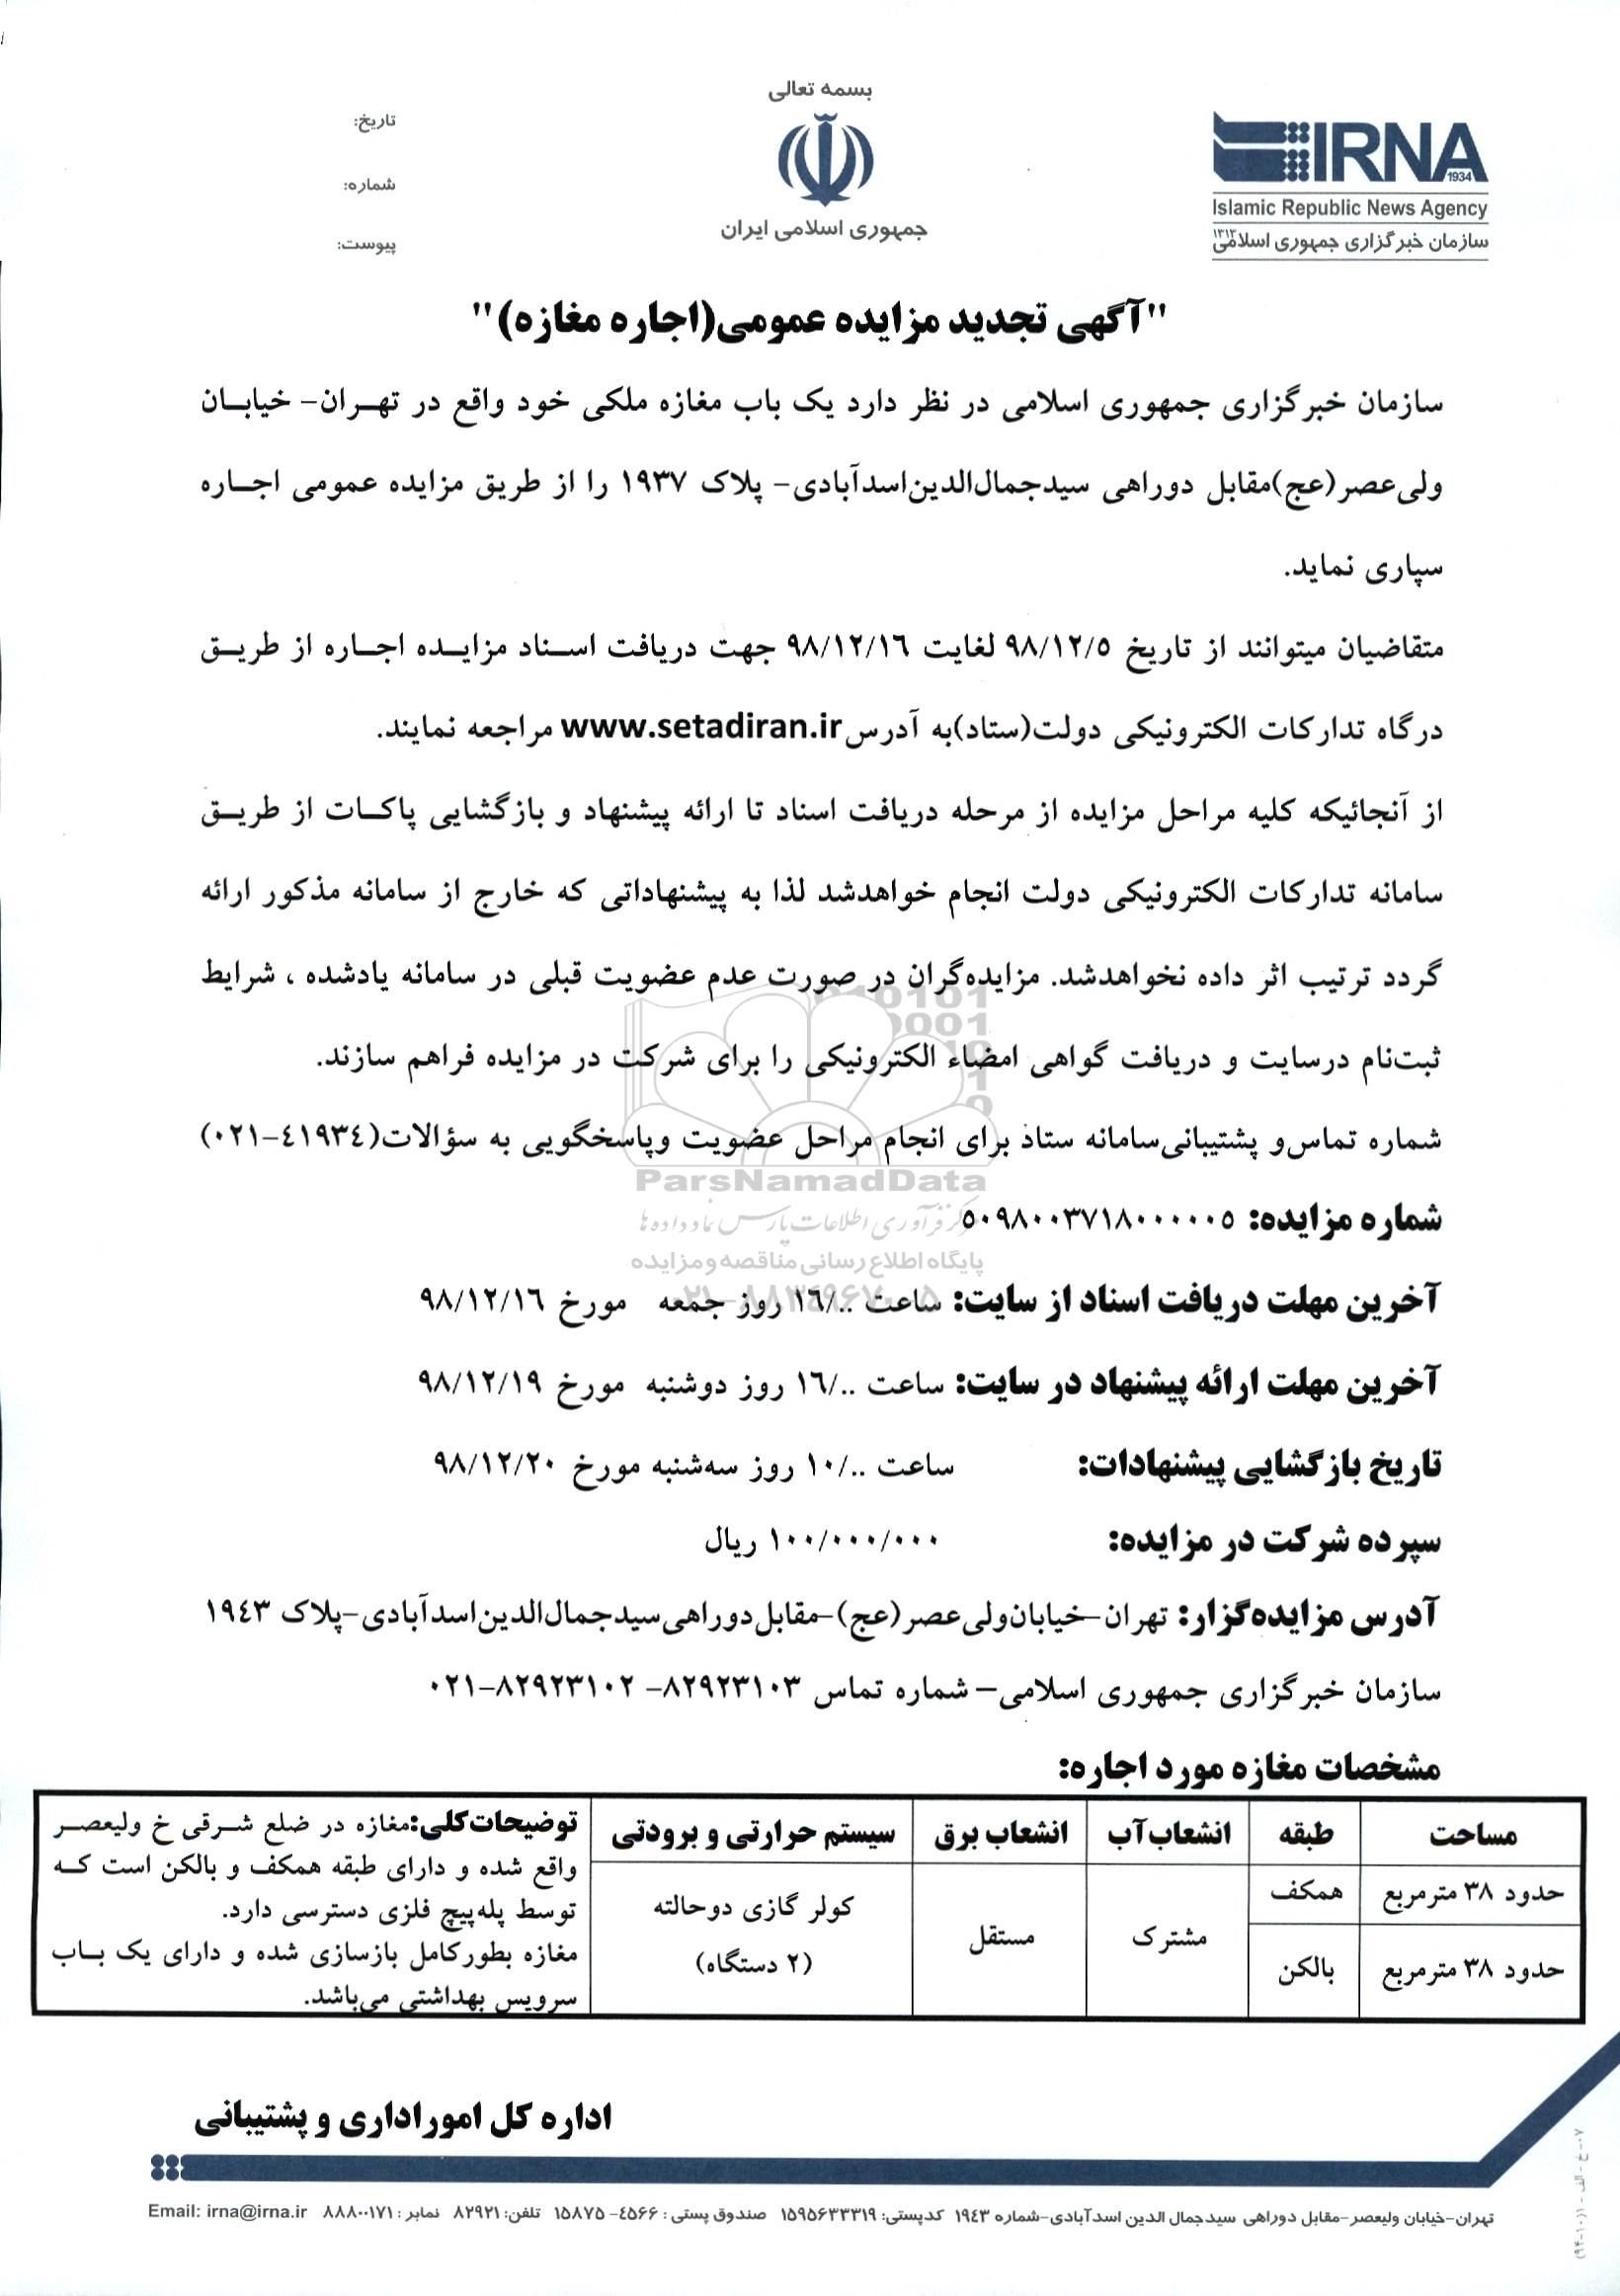 بسمه تعالی
جمهوری اسلامی ایران
IRNA
1934
Islamic Republic News Agency
سازمان خبرگزاری جمهوری اسلامی
۱۳۱۳
تاریخ:
شماره:
پیوست:
"آگهی تجدید مزایده عمومی(اجاره مغازه)"
سازمان خبرگزاری جمهوری اسلامی در نظر دارد یک باب مغازه ملکی خود واقع در تهـران- خیابـان
ولی‌عصر(عج)مقابل دوراهی سیدجمال‌الدین‌اسدآبادی- پلاک ۱۹۳۷ را از طریق مزایده عمومی اجـاره
سپاری نماید.
متقاضیان میتوانند از تاریخ ۹۸/۱۲/۵ لغایت ۹۸/۱۲/۱۶ جهت دریافت اسـناد مزایـده اجـاره از طریـق
درگاه تدارکات الکترونیکی دولت(ستاد)به آدرس www.setadiran.ir مراجعه نمایند.
از آنجائیکه کلیه مراحل مزایده از مرحله دریافت اسناد تا ارائه پیشنهاد و بازگشایی پاکـات از طریـق
سامانه تدارکات الکترونیکی دولت انجام خواهدشد لذا به پیشنهاداتی که خارج از سامانه مذکور ارائه
گردد ترتیب اثر داده نخواهدشد. مزایده‌گران در صورت عدم عضویت قبلی در سامانه یادشده ، شرایط
ثبت‌نام درسایت و دریافت گواهی امضاء الکترونیکی را برای شرکت در مزایده فراهم سازند.
شماره تماس‌و پشتیبانی‌سامانه ستاد برای انجام مراحل عضویت وپاسخگویی به سؤالات(۴۱۹۳۴-۰۲۱)
ParsNamadData
شماره مزایده: ۵۰۹۸۰۰۳۷۱۸۰۰۰۰۰۵
مرکز فرآوری اطلاعات پارس نماد داده ها
پایگاه اطلاع رسانی مناقصه و مزایده
۰۲۱-۸۸۳۴۹۶۷۰-۵
آخرین مهلت دریافت اسناد از سایت: ساعت ../۱۶ روز جمعه مورخ ۹۸/۱۲/۱۶
آخرین مهلت ارائه پیشنهاد در سایت: ساعت ../۱۶ روز دوشنبه مورخ ۹۸/۱۲/۱۹
تاریخ بازگشایی پیشنهادات: ساعت ../۱۰ روز سه‌شنبه مورخ ۹۸/۱۲/۲۰
سپرده شرکت در مزایده: ۱۰۰/۰۰۰/۰۰۰ ریال
آدرس مزایده‌گزار: تهران-خیابان‌ولی‌عصر(عج)-مقابل‌دوراهی‌سیدجمال‌الدین‌اسدآبادی-پلاک ۱۹۴۳
سازمان خبرگزاری جمهوری اسلامی- شماره تماس ۸۲۹۲۳۱۰۳- ۸۲۹۲۳۱۰۲-۰۲۱
مشخصات مغازه مورد اجاره:
مساحت طبقه انشعاب‌آب انشعاب برق سیستم حرارتی و برودتی
حدود ۳۸ مترمربع همکف مشترک مستقل کولر گازی دوحالته
(۲ دستگاه)
حدود ۳۸ مترمربع بالکن
توضیحات‌کلی:مغازه در ضلع شـرقی خ ولیعصـر
واقع شده و دارای طبقه همکف و بالکن است کـه
توسط پله‌پیچ فلزی دسترسی دارد.
مغازه بطورکامل بازسازی شده و دارای یک بـاب
سرویس بهداشتی می‌باشد.
اداره کل اموراداری و پشتیبانی
تهران-خیابان ولیعصر-مقابل دوراهی سیدجمال الدین اسدآبادی-شماره ۱۹۴۳ کدپستی: ۱۵۹۵۶۳۳۳۱۹ صندوق پستی : ۴۵۶۶- ۱۵۸۷۵ تلفن: ۸۲۹۲۱ نمابر : ۸۸۸۰۰۱۷۱ Email: irna@irna.ir